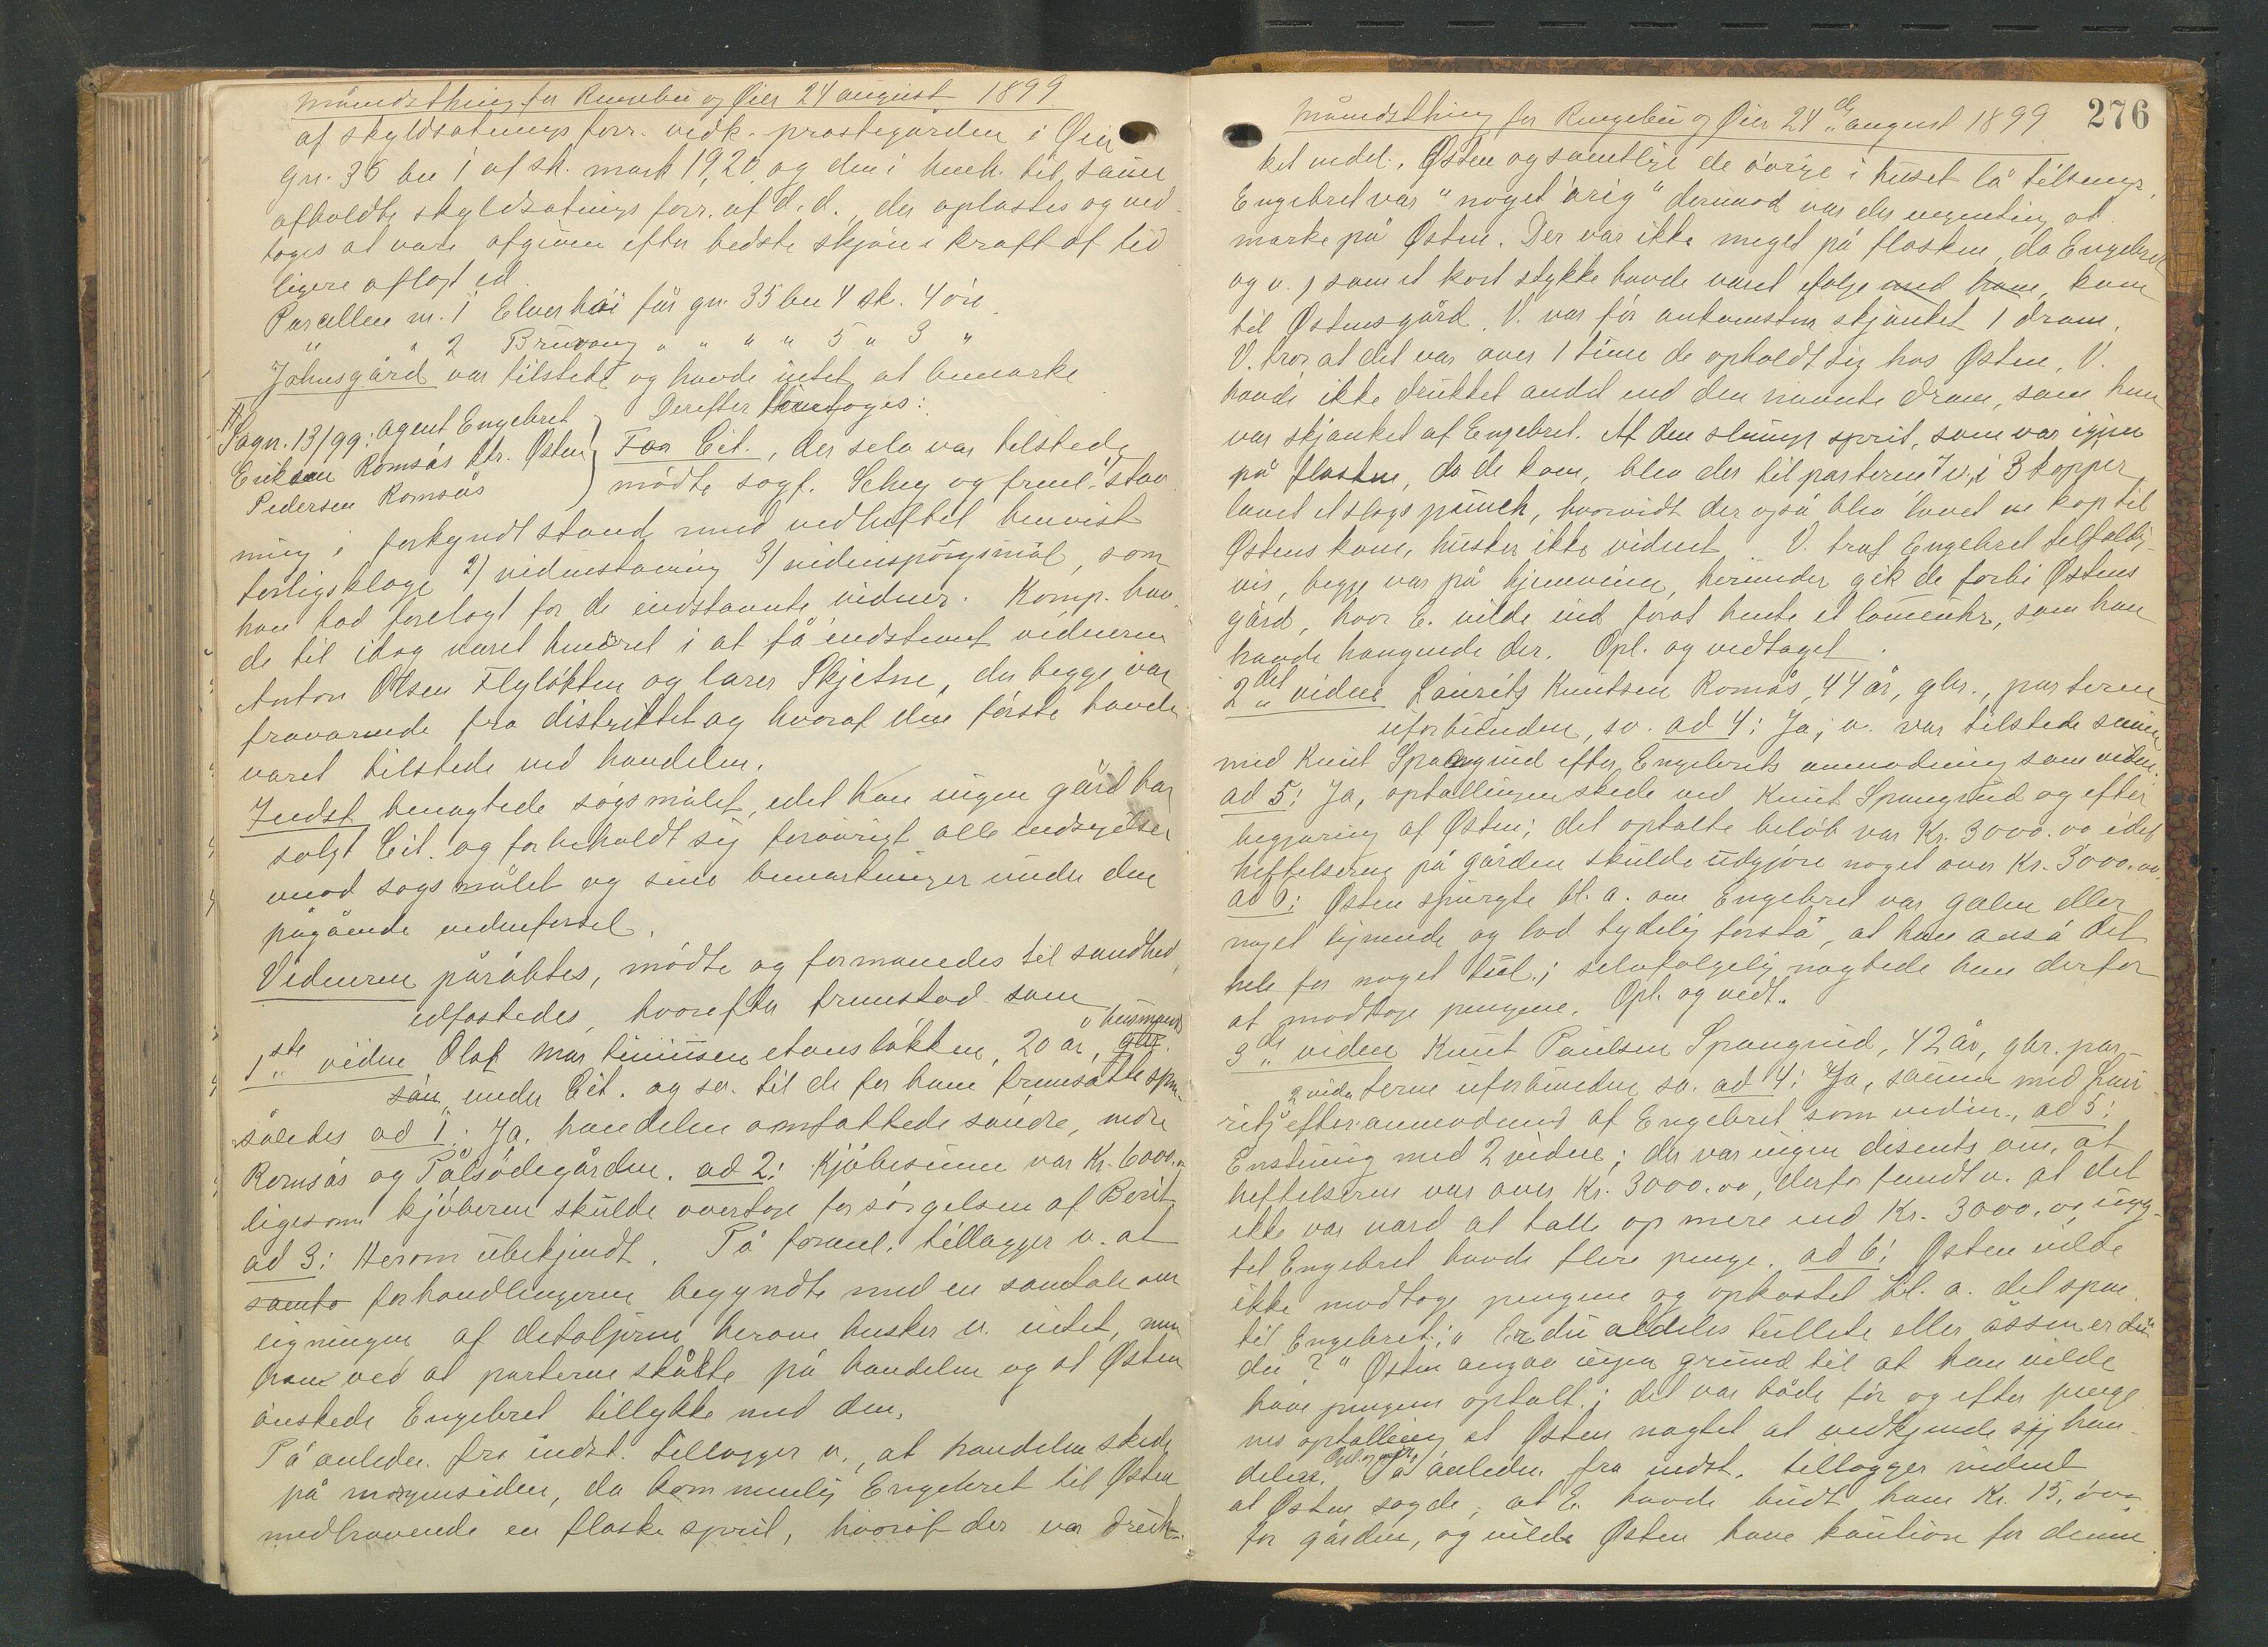 Månedsthing for Ringebu og Øier 24 august 1899
af skyldsætnings forr. vedk. præstegården i Øier
gn. 36 bn 1 af sk. mark 19,20 og den i henh. til samme
afholdte skyldsætnings forr. af d.d., der oplæstes og ved-
toges at være afgiven efter bedste skjøn i kraft af tid
ligere aflagt ed.
Parcellen nr. 1 Elverhøi får gn. 35 bn 4 sk. 4 øre
" " 2 Bruvang " " " " 5 " 3 "
Johnsgård var tilstede og havde intet at bemærke
Derefter foretoges:
Sagn. 13/99: agent Engebret
Eriksen Romsås ctr. Østen
Pedersen Romsås
For Cit., der selv var tilstede,
mødte sagf. Schey og freml. 1) stæv
ning i forkyndt stand med vedheftet bevist
forligsklage 2) vidnestævning 3) vidnespørgsmål, som
han bad forelagt for de indstævnte vidner. Komp. hav
de til idag været hindret i at få indstevnt vidnerne
Anton Olsen Flyløkken og lærer Skjetne, der begge var
fraværende fra distriktet og hvoraf den første havde
været tilstede ved handelen.
Indst. benægtede søgsmålet, idet han ingen gård har
solgt Cit. og forbeholdt sig forøvrigt alle indsigelser
imod søgsmålet og sine bemærkninger under den
pågående vidneførsel.
Vidnerne påråbtes, mødte og formanedes til sandhed,
edfæstedes, hvorefter fremstod som
1ste vidne Olaf Martiniusen etansløkken, 20 år, gbr. husmands
søn under Cit. og sv. til de for ham fremsatte spm.
således ad 1: Ja, handelen omfattede søndre, nedre
Romsås og Pålsødegården. ad 2: Kjøbesummen var Kr. 6000.00
ligesom kjøberen skulde overtage forsørgelsen af Berit
ad 3: Herom ubekjendt. På foranl. tillægger v. at
samta forhandlingerne begyndte med en samtale om
ligningen af detaljerne herom husker v. intet, men
han ved at parterne skålte på handelen og at Østen
ønskede Engebret tillykke med den.
På anledn. fra indst. tillægger v., at handelen skede
på morgensiden, da kom nemlig Engebret til Østen
medhavende en flaske sprit, hvoraf der var druk-
Månedsthing for Ringebu og Øier 24de august 1899 276
ket endel. Østen og samtlige de øvrige i huset lå tilsengs,
Engebret var "noget ørig" derimod var der ingenting at
mærke på Østen. Der var ikke meget på flasken, da Engebret
og v., som et kort stykke havde været ifølge med ham, kom
til Østensgård. V. var før ankomsten skjænket 1 dram.
V. tror, at det var over 1 time de opholdt sig hos Østen, V.
havde ikke drukket andet end den nævnte dram, som han
var skjænket af Engebret. Af den slumps sprit, som var igjen
på flasken, da de kom, blev der til parterne & v. i 3 kopper
lavet et slags punch, hvorvidt der også blev lavet en kop til
Østens kone, husker ikke vidnet. V. traf Engebret tilfældig-
vis, begge var på hjemveien, herunder gik de forbi Østens
gård, hvor E. vilde ind forat hente et lommeuhr, som han
havde hængende der. Opl. og vedtaget.
2det vidne Laurits Knutsen Romsås, 44 år, gbr., parterne
uforbunden, sv. ad 4: Ja, v. var tilstede samm
med Knut Spangrud efter Engebrets anmodning som vidne.
ad 5: Ja, optællingen skede ved Knut Spangrud og efter
begjæring af Østen; det optalte beløb var Kr. 3000.00 idet
heftelserne på gården skulde udgjøre noget over Kr. 3000.00.
ad 6: Østen spurgte bl. a. om Engebret var galen eller
noget lignende og lod tydelig forstå, at han anså det
hele for noget tul; selvfølgelig nægtede han derfor
at modtage pengene. Opl. og vedt.
3de vidne Knut Paulsen Spangrud, 42 år, gbr. par-
terne uforbunden sv. ad 4: Ja, samm med Lau-
rits 2 vidne efter anmodning af Engebret som vidne, ad 5:
Enstemmig med 2 vidne; der var ingen disents om, at
heftelserne var over Kr. 3000.00, derfor fandt v. at det
ikke var værd at tælle op mere end Kr. 3000.00, uagt-
tet Engebret havde flere penge. ad 6: Østen vilde
ikke modtage pengene og opkastet bl. a. det spm.
til Engebret: "Er du aldeles tullete eller åssen er du
du?" Østen angav ingen grund til at han vilde
have pengene optalt; det var både før og efter penge
nes optælling at Østen nægtet at vedkjende sig han-
delen. Opl. og vedt. På anledn. fra indst. tillægger vidnet
at Østen sagde, at E. havde budt ham Kr. 15, over
for gården, og vilde Østen have kaution for denne